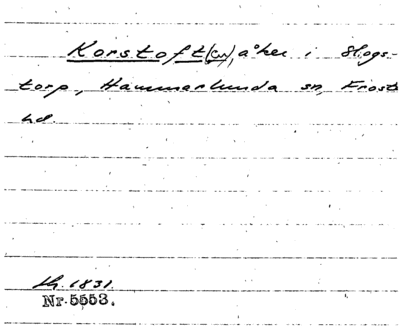 Korstoft(en), åker i Skogs-
torp, Hammarlunda sn, Frosta
hd.
1831.
Nr. 5553.